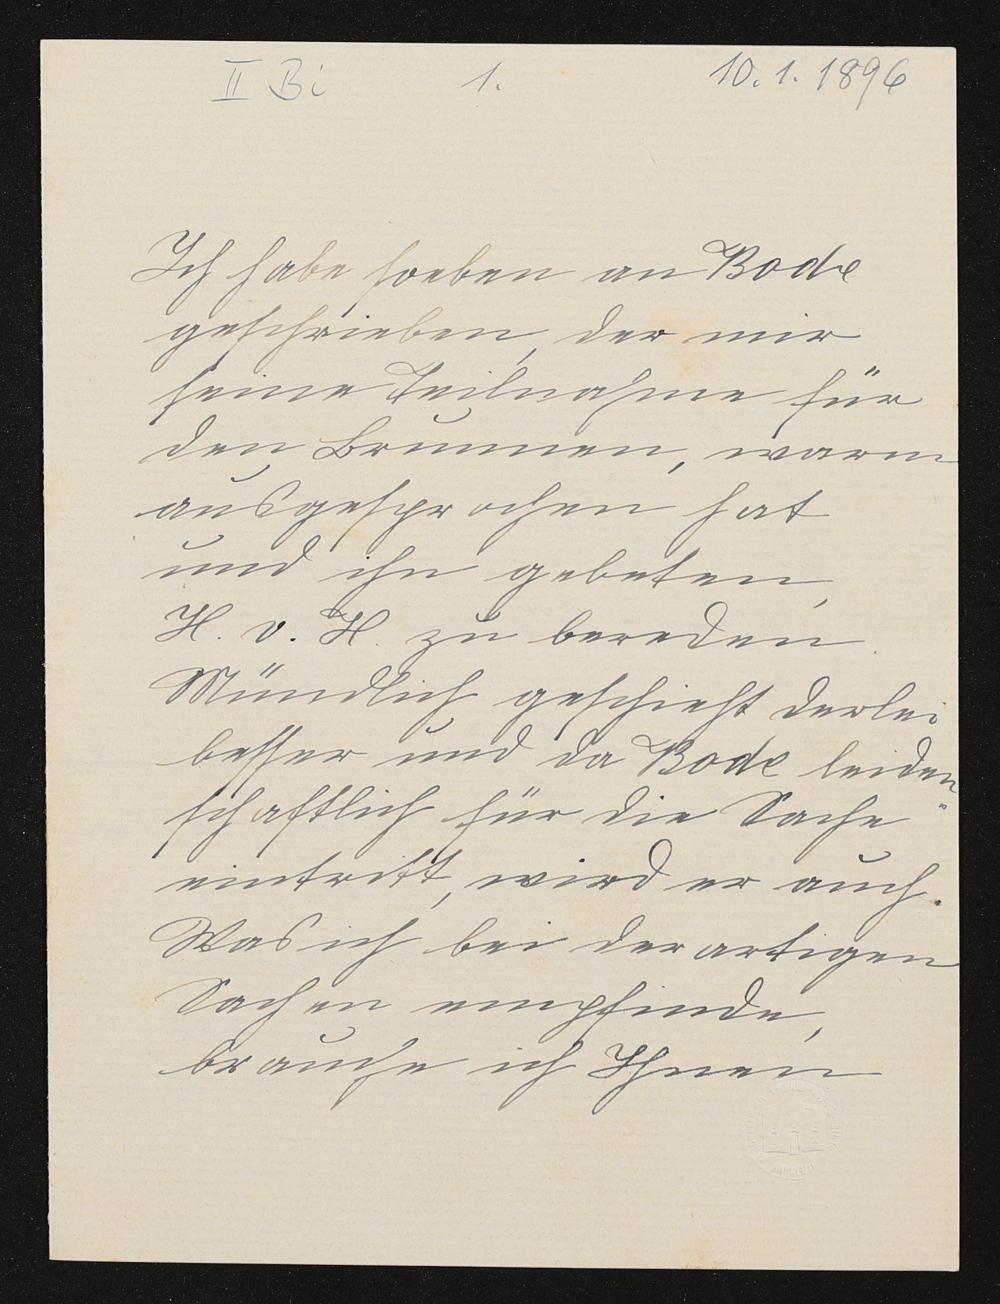 II Bi 1. 10. 1. 1896
Ich habe soeben an Bode
geschrieben, der mir
seine Teilnahme für
den Brunnen, warm
ausgesprochen hat
und ihn gebeten,
H. v. H. zu bereden.
Mündlich geschieht derlei
besser und da Bode leiden-
schaftlich für die Sache
eintritt, wird er auch.
Was ich bei derartigen
Sachen empfinde,
brauche ich Ihnen